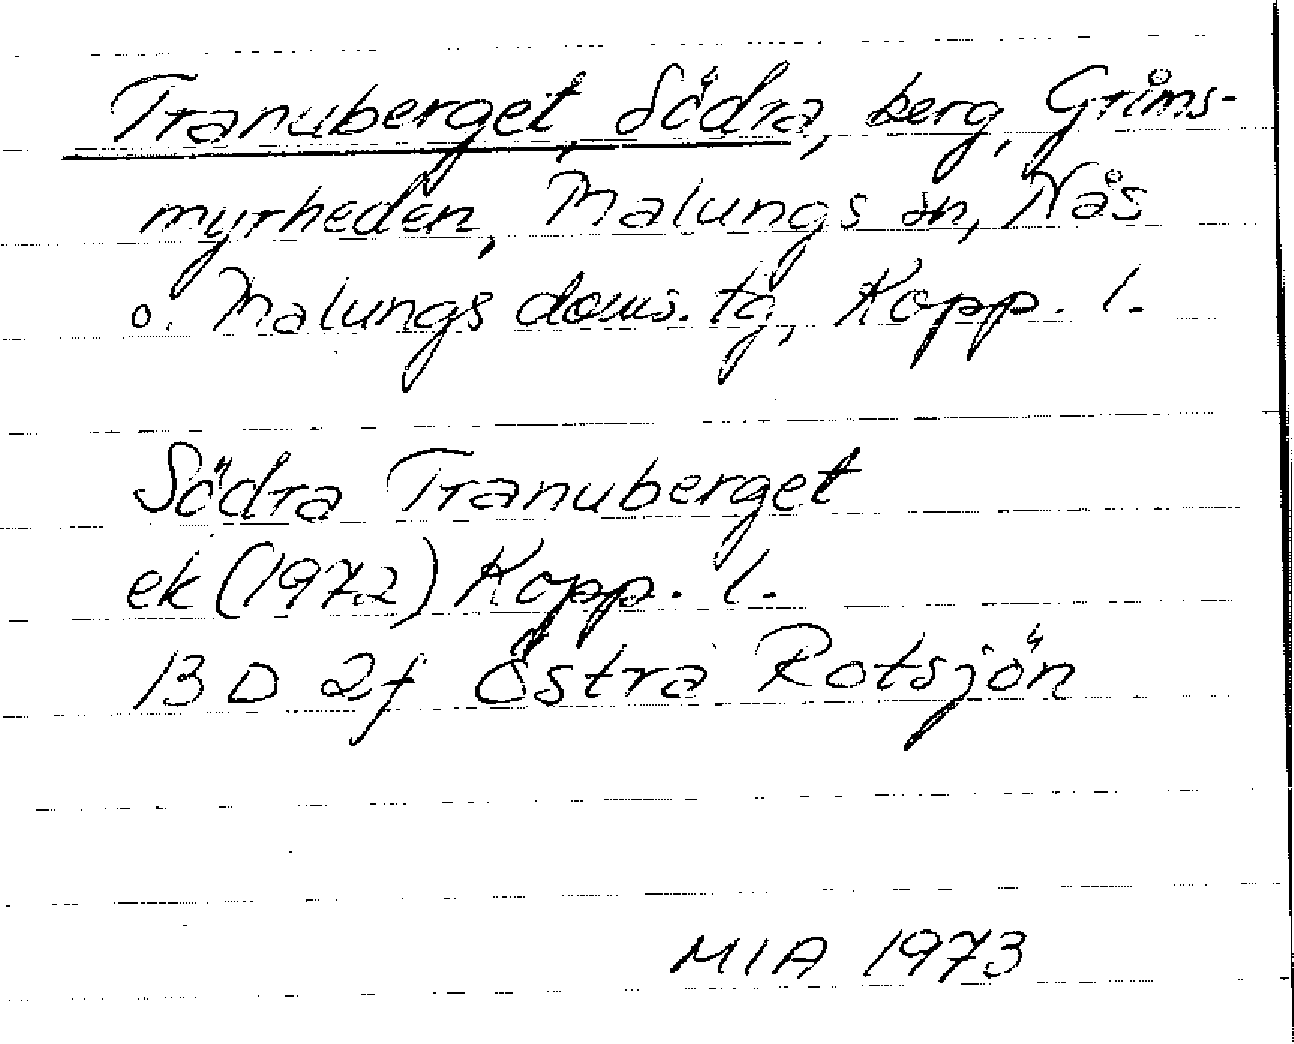 Tranuberget, Södra, berg, Gríms-
myrheden, Malungs sn, Nås
o. Malungs doms. tg, Kopp. l.
Södra Tranuberget
ek (1972) Kopp. l.
13 D 2f Östra Rotsjön
MIA 1973